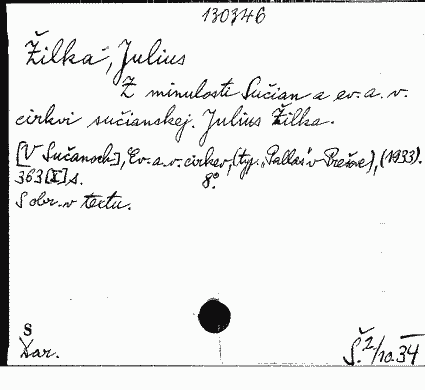 130346
Žilka, Julius
Z minulosti Sučian a ev. a. v.
cirkvi sučianskej. Julius Žilka.
[V Sučanoch], Ev. a. v. cirkev, (typ. „Pallas“ v Prešove), (1933).
363 [I] s. 8°.
S obr. v textu.
S
Dar.
Š. 2/10.34